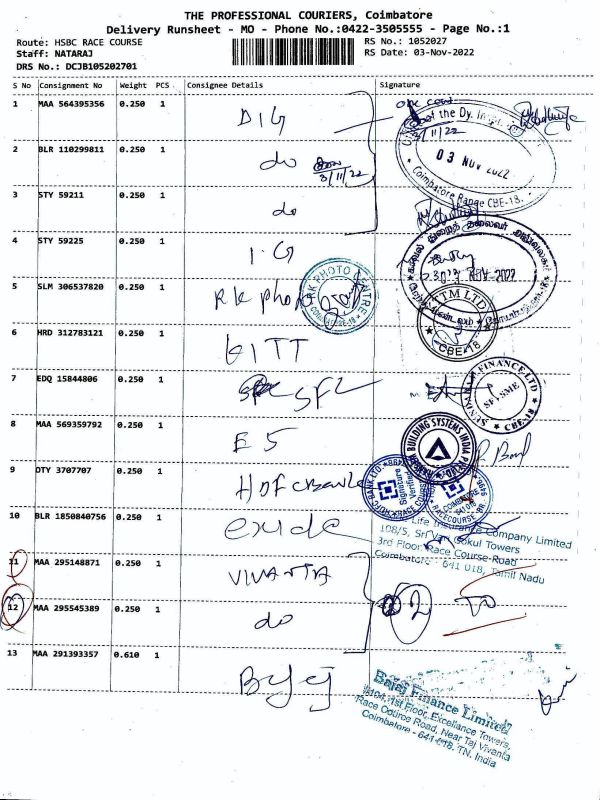 THE PROFESSIONAL COURIERS, Coimbatore
Delivery Runsheet - MO - Phone No.:0422-3505555 - Page No.:1
Route: HSBC RACE COURSE
RS No.: 1052027
Staff: NATARAJ
RS Date: 03-Nov-2022
DRS No.: DCJB105202701
S No Consignment No Weight PCS Consignee Details Signature
1 MAA 564395356 0.250 1 DIG
of the Dy.
3/11/22
03 NOV 2022
Coimbatore Range CBE-18.
2 BLR 110299811 0.250 1 do
3/11/22
3 STY 59211 0.250 1 do
4 STY 59225 0.250 1 I.G
NOV 2022
5 SLM 306537820 0.250 1 RK photo
RK PHOTO CENTRE
COIMBATORE-18
6 HRD 312783121 0.250 1 KITT
TM LTD
CBE-18
7 EDQ 15844806 0.250 1 SFL
SUNDARAM FINANCE LTD
SFL-SME
CBE-18
8 MAA 569359792 0.250 1 E5
BUILDING SYSTEMS INDIA
9 OTY 3707707 0.250 1 HDFC Bank
HDFC BANK LTD
Signature Verified
RACE COURSE
COIMBATORE
641018
RACE COURSE-BR
10 BLR 1850840756 0.250 1 exide
Life Insurance Company Limited
108/5, Sri Vari Gokul Towers
3rd Floor, Race Course Road
Coimbatore - 641 018, Tamil Nadu
11 MAA 295148871 0.250 1 VIVANTA
12 MAA 295545389 0.250 1 do
2
13 MAA 291393357 0.610 1 Bajaj
Bajaj Finance Limited
1st Floor, Excellance Towers,
Race Course Road, Near Taj Vivanta
Coimbatore - 641 018. TN. India